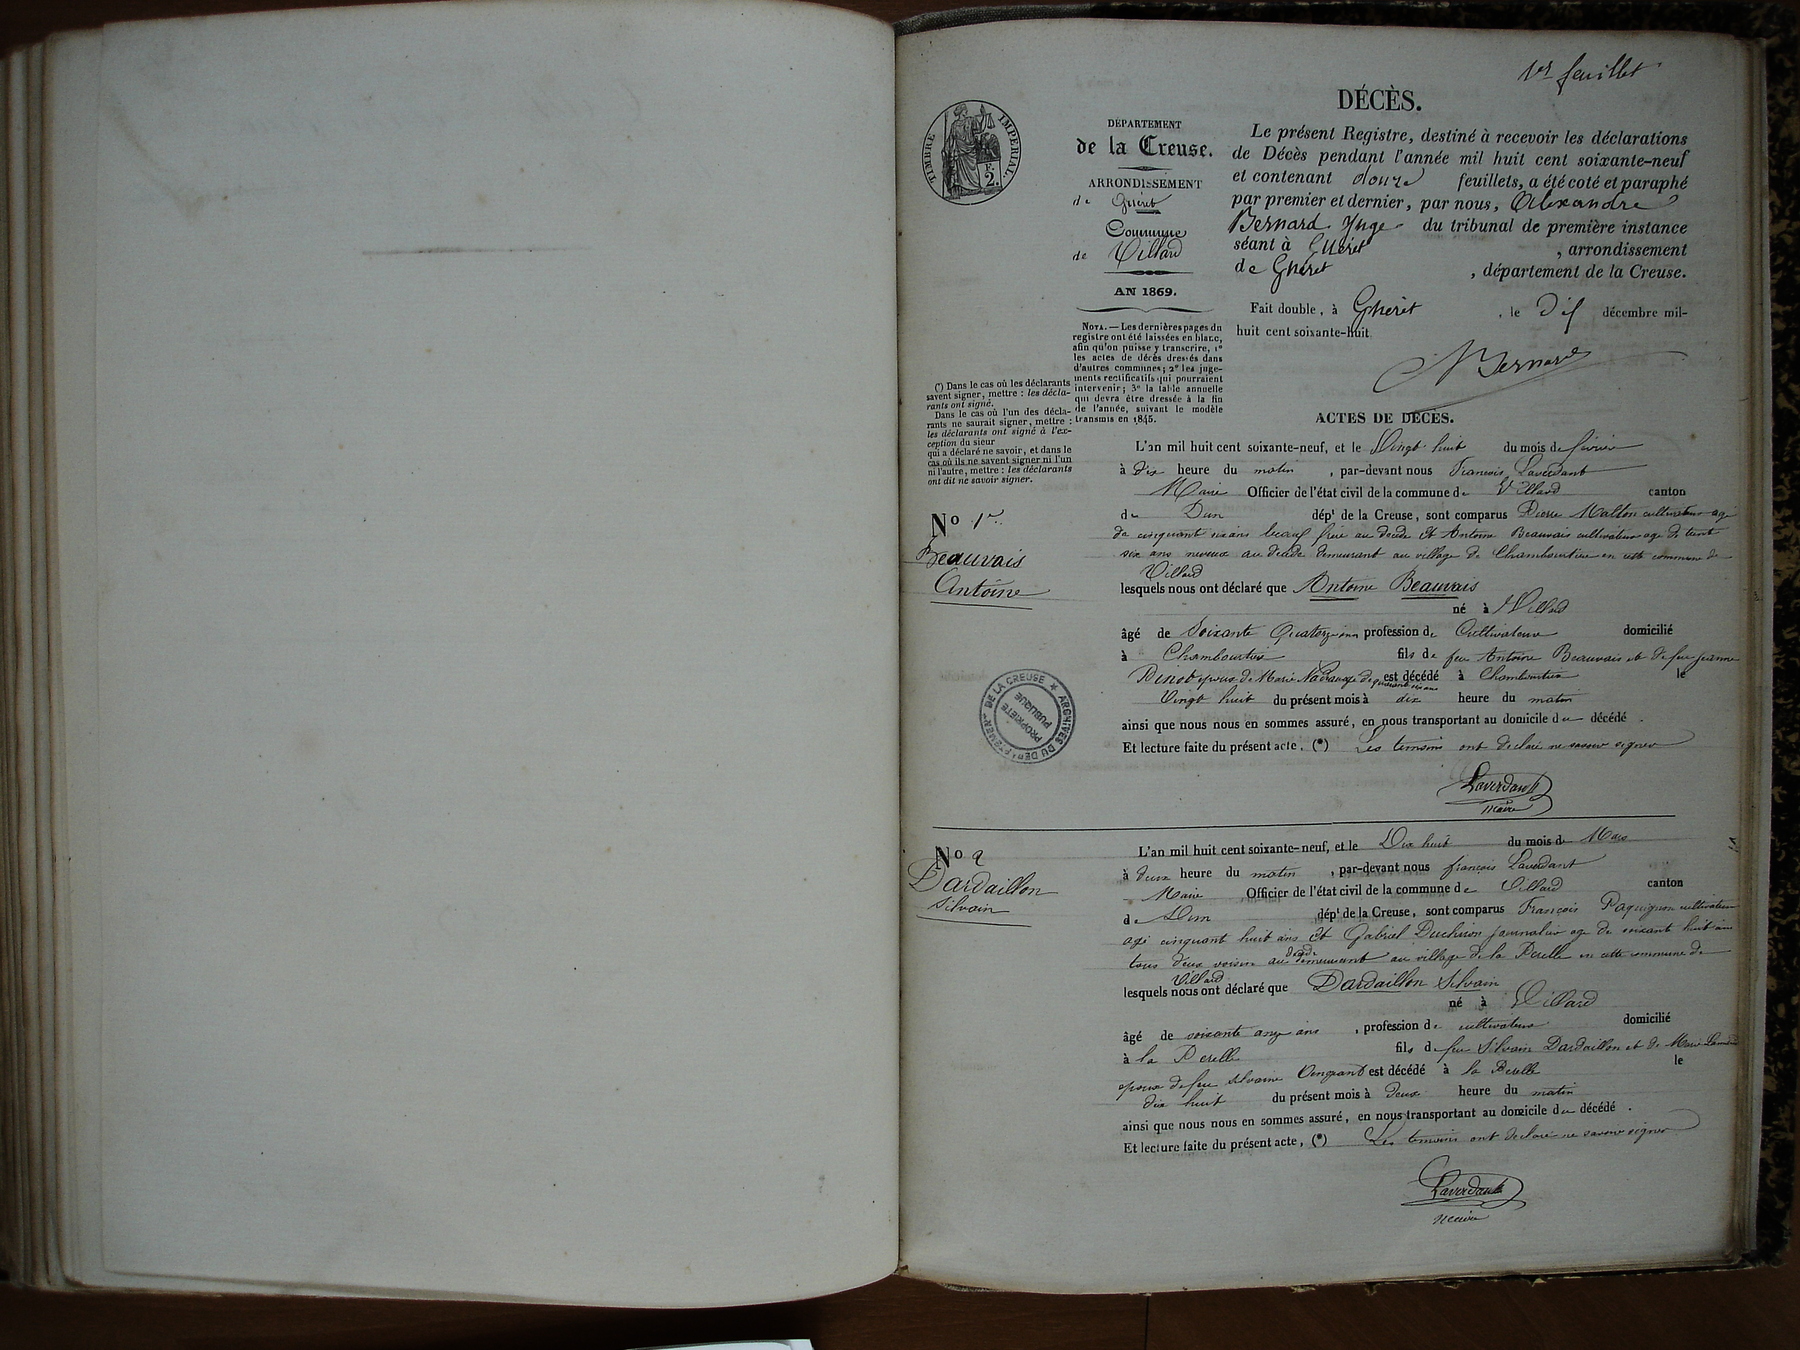 1er feuillet
DÉCÈS.
TIMBRE IMPÉRIAL.
F. 2.
DÉPARTEMENT
de la Creuse.
ARRONDISSEMENT
de Guéret
Commune
de Villard
AN 1869.
Le présent Registre, destiné à recevoir les déclarations
de Décès pendant l'année mil huit cent soixante-neuf
et contenant douze feuillets, a été coté et paraphé
par premier et dernier, par nous, Alexandre
Bernard Juge du tribunal de première instance
séant à Guéret , arrondissement
de Guéret , département de la Creuse.
Fait double, à Guéret , le Dix décembre mil-
huit cent soixante-huit
Bernard
NOTA. — Les dernières pages du
registre ont été laissées en blanc,
afin qu'on puisse y transcrire, 1º
les actes de décès dressés dans
d'autres communes; 2º les juge-
ments rectificatifs qui pourraient
intervenir; 3º la table annuelle
qui devra être dressée à la fin
de l'année, suivant le modèle
transmis en 1845.
(*) Dans le cas où les déclarants
savent signer, mettre : les décla-
rants ont signé.
Dans le cas où l'un des décla-
rants ne saurait signer, mettre :
les déclarants ont signé à l'ex-
ception du sieur
qui a déclaré ne savoir, et dans le
cas où ils ne savent signer ni l'un
ni l'autre, mettre : les déclarants
ont dit ne savoir signer.
ACTES DE DÉCÈS.
No 1er
Beauvais
Antoine
L'an mil huit cent soixante-neuf, et le Vingt huit du mois de février
à dix heure du matin , par-devant nous François Laverdant
Maire Officier de l'état civil de la commune de Villard canton
de Dun dépt de la Creuse, sont comparus Pierre Malton cultivateur agé
de cinquant six ans beauf frère au décédé Et Antoine Beauvais cultivateur age de trent
six ans neveux au décédé demeurant au village de en cette commune de
Villard
lesquels nous ont déclaré que Antoine Beauvais
né à Villard
âgé de Soixante Quatorze ans profession de Cultivateur domicilié
à fils de feu Antoine Beauvais et de feu jeanne
Pinot epoux de Marie de est décédé à le
Vingt huit du présent mois à dix heure du matin
ainsi que nous nous en sommes assuré, en nous transportant au domicile du décédé .
Et lecture faite du présent acte, (*) Les temoins ont declaré ne savoir signer
Laverdant
maire
ARCHIVES DU DÉPARTEMENT DE LA CREUSE
PROPRIÉTÉ PUBLIQUE
No 2
Dardaillon
Silvain
L'an mil huit cent soixante-neuf, et le Dix huit du mois de Mars
à deux heure du matin , par-devant nous françois Laverdant
Maire Officier de l'état civil de la commune de Villard canton
de Dun dépt de la Creuse, sont comparus François Paquignon cultivateur
agé cinquant huit ans Et Gabriel Duchiron journalier age de soixant huit ans
tous deux voisin au décédé demeurant au village de la Perelle en cette commune de
Villard
lesquels nous ont déclaré que Dardaillon Silvain
né à Villard
âgé de soixante onze ans , profession de cultivateur domicilié
à la Perelle fils de feu Silvain Dardaillon et de Marie
epoux de feu Silvaine Vingrant est décédé à la Perelle le
dix huit du présent mois à deux heure du matin
ainsi que nous nous en sommes assuré, en nous transportant au domicile du décédé .
Et lecture faite du présent acte, (*) Les temoins ont declaré ne savoir signer
Laverdant
maire